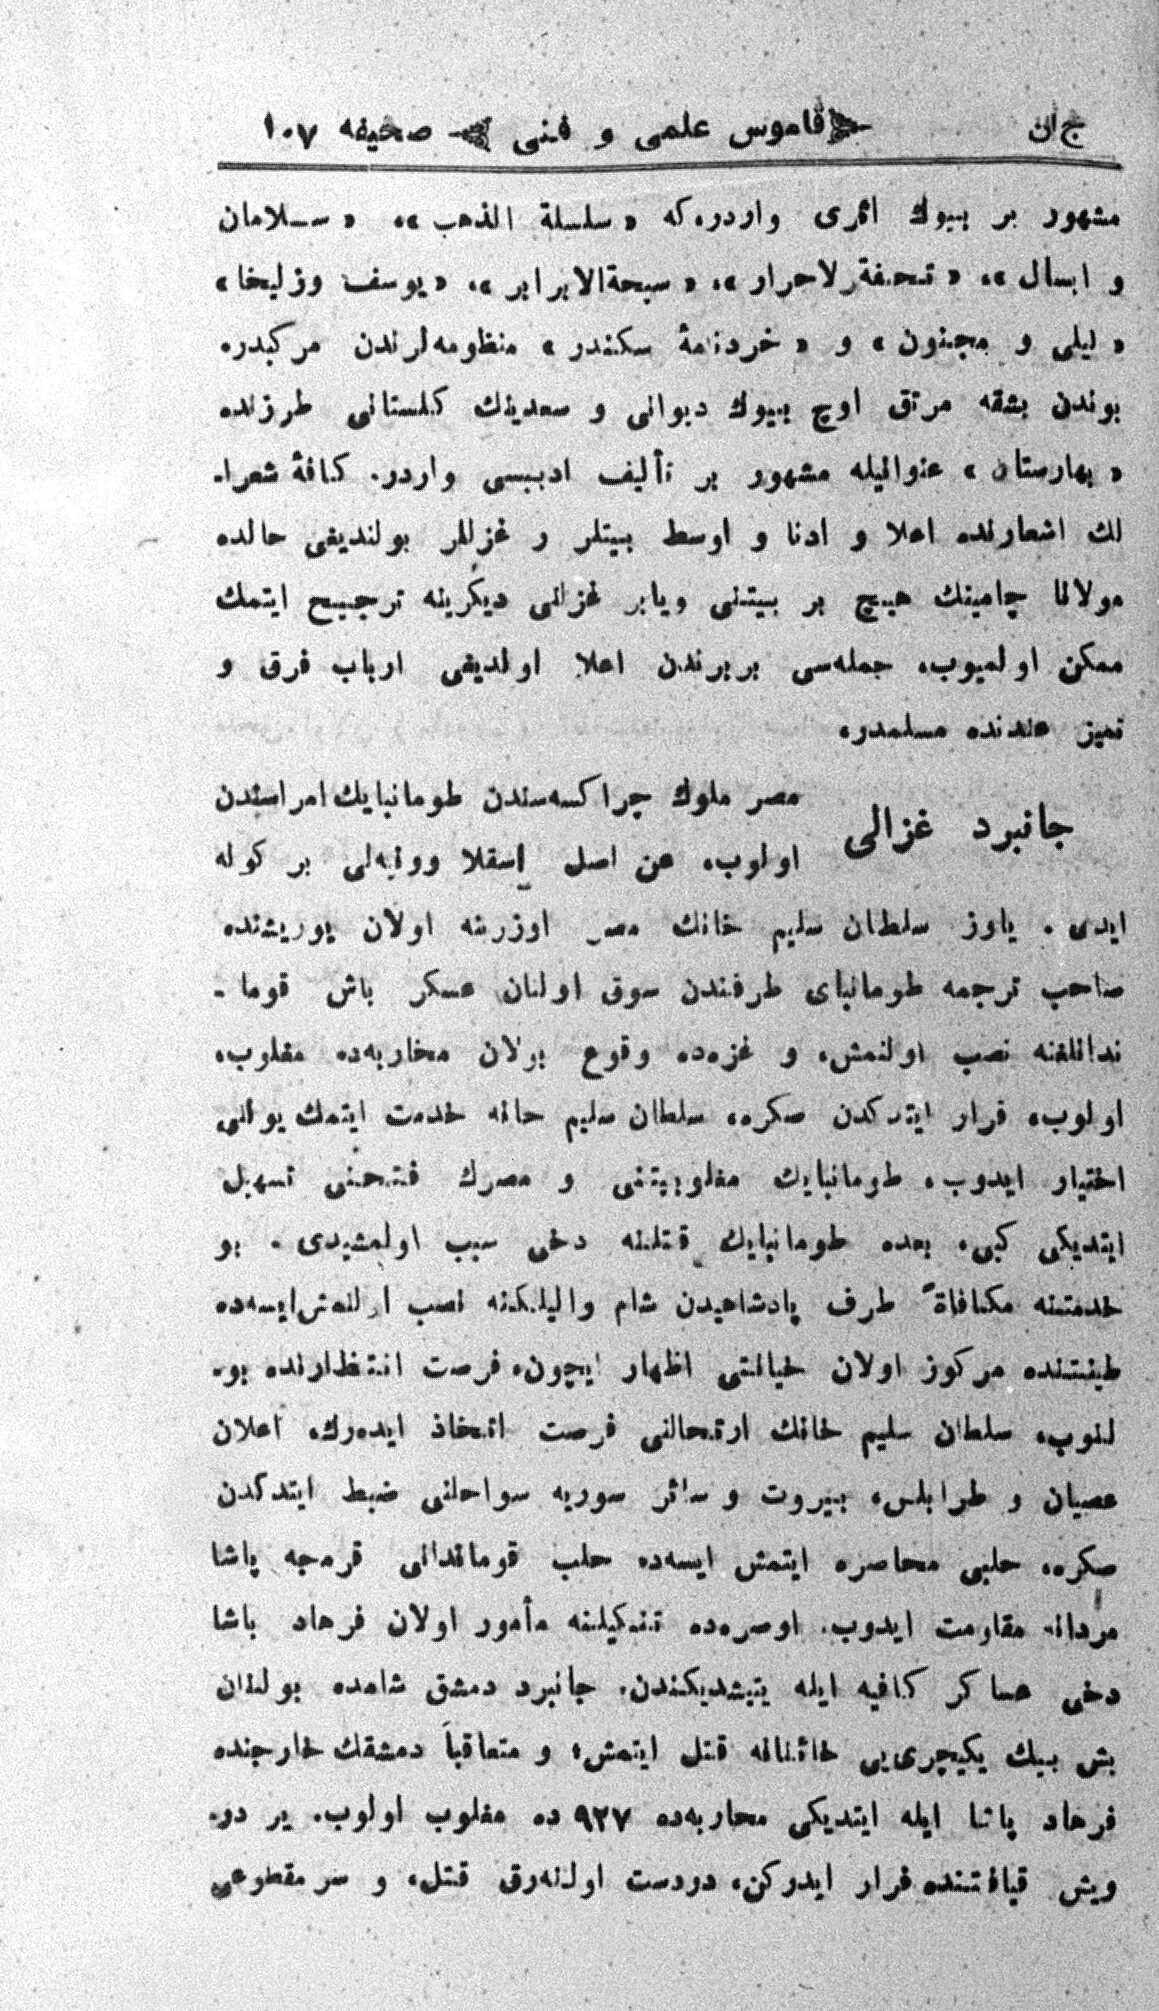 ج ان قاموس علمی و فنی صحیفه ١٠٧
مشهور بر بیوك اثری واردر، که « سلسلة الذهب »، « سـلامان
و ابسال »، « تحفةرلاحرار »، « سبحةالابرابر »، « یوسف وزلیخا »
« لیلی و مجنون » و « خردنامۀ سکندر » منظومه‌لرندن مرکبدر.
بوندن بشقه مرتق اوچ بیوك دیوانی و سعدینك کلستانی طرزنده
« بهارستان » عنوانیله مشهور بر تألیف ادبیسی واردر. کافۀ شعرا-
نك اشعارنده اعلا و ادنا و اوسط بیتلر و غزللر بولندیغی حالده
مولانا جامینك هیچ بر بیتنی ویابر غزلنی دیکرینه ترجیح ایتمك
ممکن اولمیوب، جمله‌سی بربرندن اعلا اولدیغی ارباب فرق و
تمیز عندنده مسلمدر،
جانبرد غزالی
مصر ملوك چراکسه‌سندن طومانبایك امراسندن
اولوب، عن اصل اسقلا وونیه‌لی بر کوله
ایدی . یاوز سلطان سلیم خانك مصر اوزرینه اولان یوریشنده
صاحب ترجمه طومانبای طرفندن سوق اولنان عسکر باش قوما -
ندانلغنه نصب اولنمش، و غزه‌ده وقوع بولان محاربه‌ده مغلوب،
اولوب، فرار ایتدکدن صکره، سلطان سلیم خانه خدمت ایتمك یولنی
اختیار ایدوب، طومانبایك مغلوبیتنی و مصرك فتحنی تسهیل
ایتدیکی کبی، بعده طومانبایك قتلنه دخی سبب اولمشیدی . بو
خدمتنه مکافاةً طرف پادشاهیدن شام والیلکنه نصب اولنمش‌ایسه‌ده
طینتنده مرکوز اولان خیانتی اظهار ایچون، فرصت انتظارنده بو-
لنوب، سلطان سلیم خانك ارتحالنی فرصت اتخاذ ایده‌رك، اعلان
عصیان و طرابلس، بیروت و سائر سوریه سواحلنی ضبط ایتدکدن
صکره، حلبی محاصره ایتمش ایسه‌ده حلب قوماندانی قره‌جه پاشا
مردانه مقاومت ایدوب. اوصره‌ده تنکیلنه مأمور اولان فرهاد باشا
دخی عساکر کافیه ایله یتیشدیکندن، جانبرد دمشق شامده بولنان
بش بیك یکیچری‌یی خائنانه قتل ایتمش، و متعاقباً دمشقك خارجنده
فرهاد پاشا ایله ایتدیکی محاربه‌ده ٩٢٧ ده مغلوب اولوب. بر در-
ویش قیافتنده فرار ایدرکن، دردست اولنه‌رق قتل، و سر مقطوعی